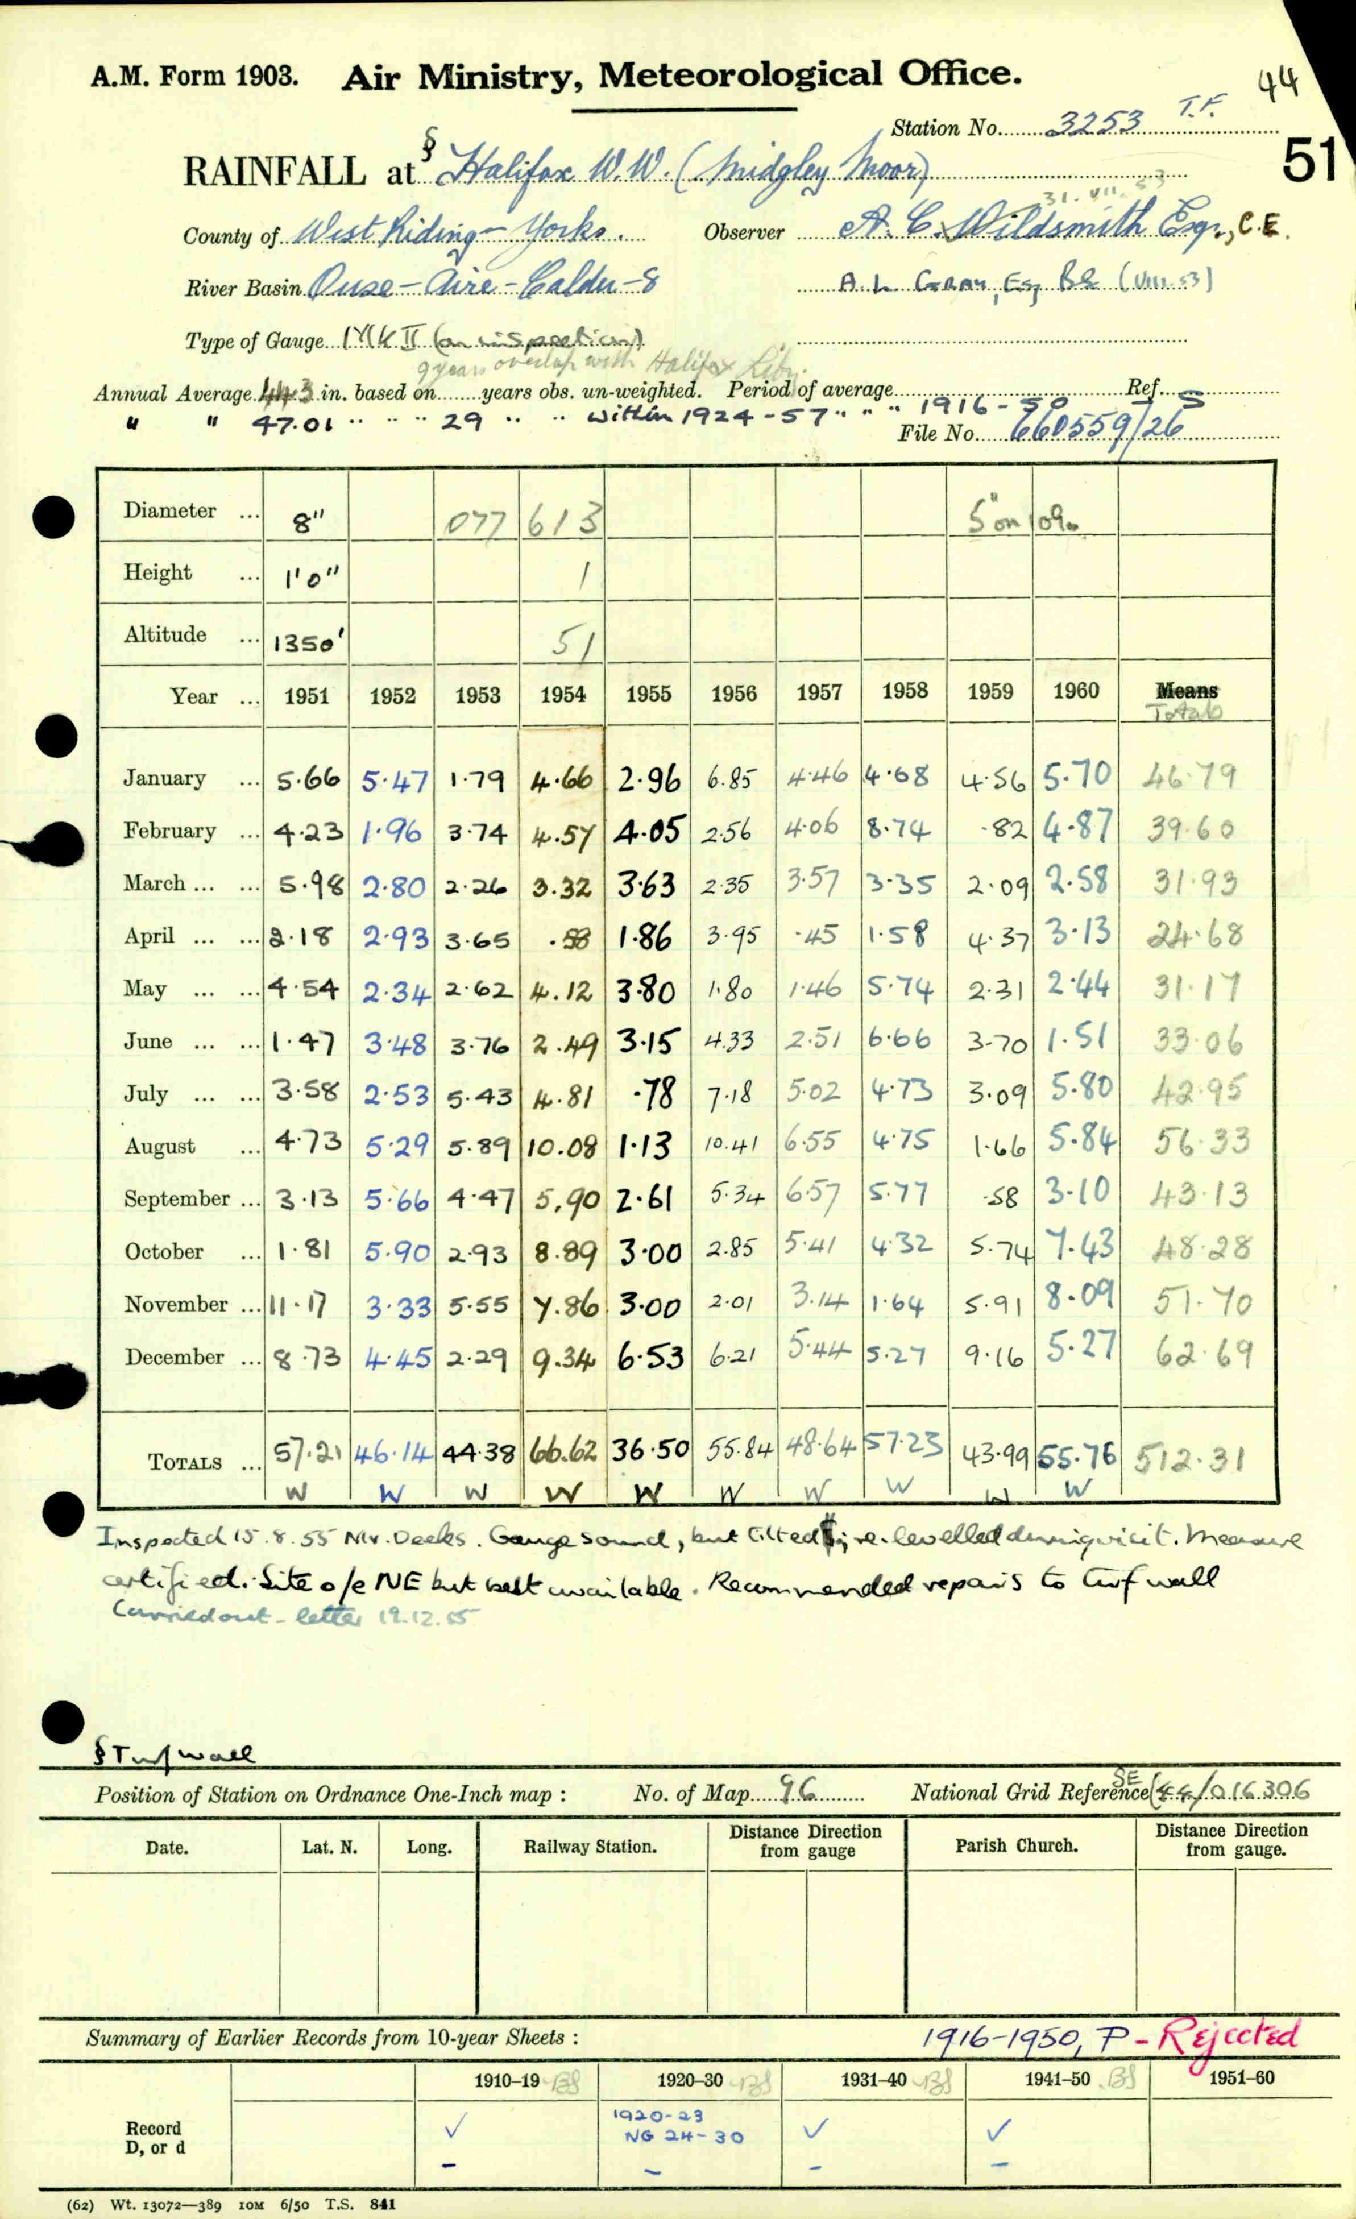 44
A.M. Form 1903. Air Ministry, Meteorological Office.
Station No. 3253 T.F.
51
RAINFALL at § Halifax W.W. (Midgley Moor)
31.VII.53
County of West Riding - Yorks. Observer A. C. Wildsmith Esqr., C.E.
River Basin Ouse - Aire - Calder - 8 A. L. GRAY, Esq, BSc (VIII.53)
Type of Gauge MK II (on inspection)
9 years overlap with Halifax Liby.
Annual Average 43 in. based on years obs. un-weighted. Period of average Ref. S
" " 47.01 " " " 29 " " within 1924-57 " " " 1916-50
File No. 660559/26
Diameter ... 8" 077 613 5" on 1090
Height ... 1'0" 1
Altitude ... 1350' 51
Year ... 1951 1952 1953 1954 1955 1956 1957 1958 1959 1960 Means
Totals
January ... 5.66 5.47 1.79 4.66 2.96 6.85 4.46 4.68 4.56 5.70 46.79
February ... 4.23 1.96 3.74 4.57 4.05 2.56 4.06 8.74 .82 4.87 39.60
March ... ... 5.98 2.80 2.26 3.32 3.63 2.35 3.57 3.35 2.09 2.58 31.93
April ... ... 2.18 2.93 3.65 .58 1.86 3.95 .45 1.58 4.37 3.13 24.68
May ... ... 4.54 2.34 2.62 4.12 3.80 1.80 1.46 5.74 2.31 2.44 31.17
June ... ... 1.47 3.48 3.76 2.49 3.15 4.33 2.51 6.66 3.70 1.51 33.06
July ... ... 3.58 2.53 5.43 4.81 .78 7.18 5.02 4.73 3.09 5.80 42.95
August ... 4.73 5.29 5.89 10.08 1.13 10.41 6.55 4.75 1.66 5.84 56.33
September ... 3.13 5.66 4.47 5.90 2.61 5.34 6.57 5.77 .58 3.10 43.13
October ... 1.81 5.90 2.93 8.89 3.00 2.85 5.41 4.32 5.74 7.43 48.28
November ... 11.17 3.33 5.55 7.86 3.00 2.01 3.14 1.64 5.91 8.09 51.70
December ... 8.73 4.45 2.29 9.34 6.53 6.21 5.44 5.27 9.16 5.27 62.69
TOTALS ... 57.21 46.14 44.38 66.62 36.50 55.84 48.64 57.23 43.99 55.76 512.31
W W W W W W W W W W
Inspected 15.8.55 Mr. Deeks. Gauge sound, but tilted; re-levelled during visit. Measure
certified. Site o/e NE but best available. Recommended repairs to turf wall
Carried out - letter 19.12.55
§ Turf wall
Position of Station on Ordnance One-Inch map : No. of Map 96 National Grid Reference SE (44/016306
Date. Lat. N. Long. Railway Station. Distance from gauge Direction Parish Church. Distance from gauge. Direction
Summary of Earlier Records from 10-year Sheets : 1916-1950, P - Rejected
1910–19 1920–30 1931–40 1941–50 1951–60
Record ✓ 1920-23 ✓ ✓
D, or d NG 24-30
- - - -
(62) Wt. 13072—389 10M 6/50 T.S. 841